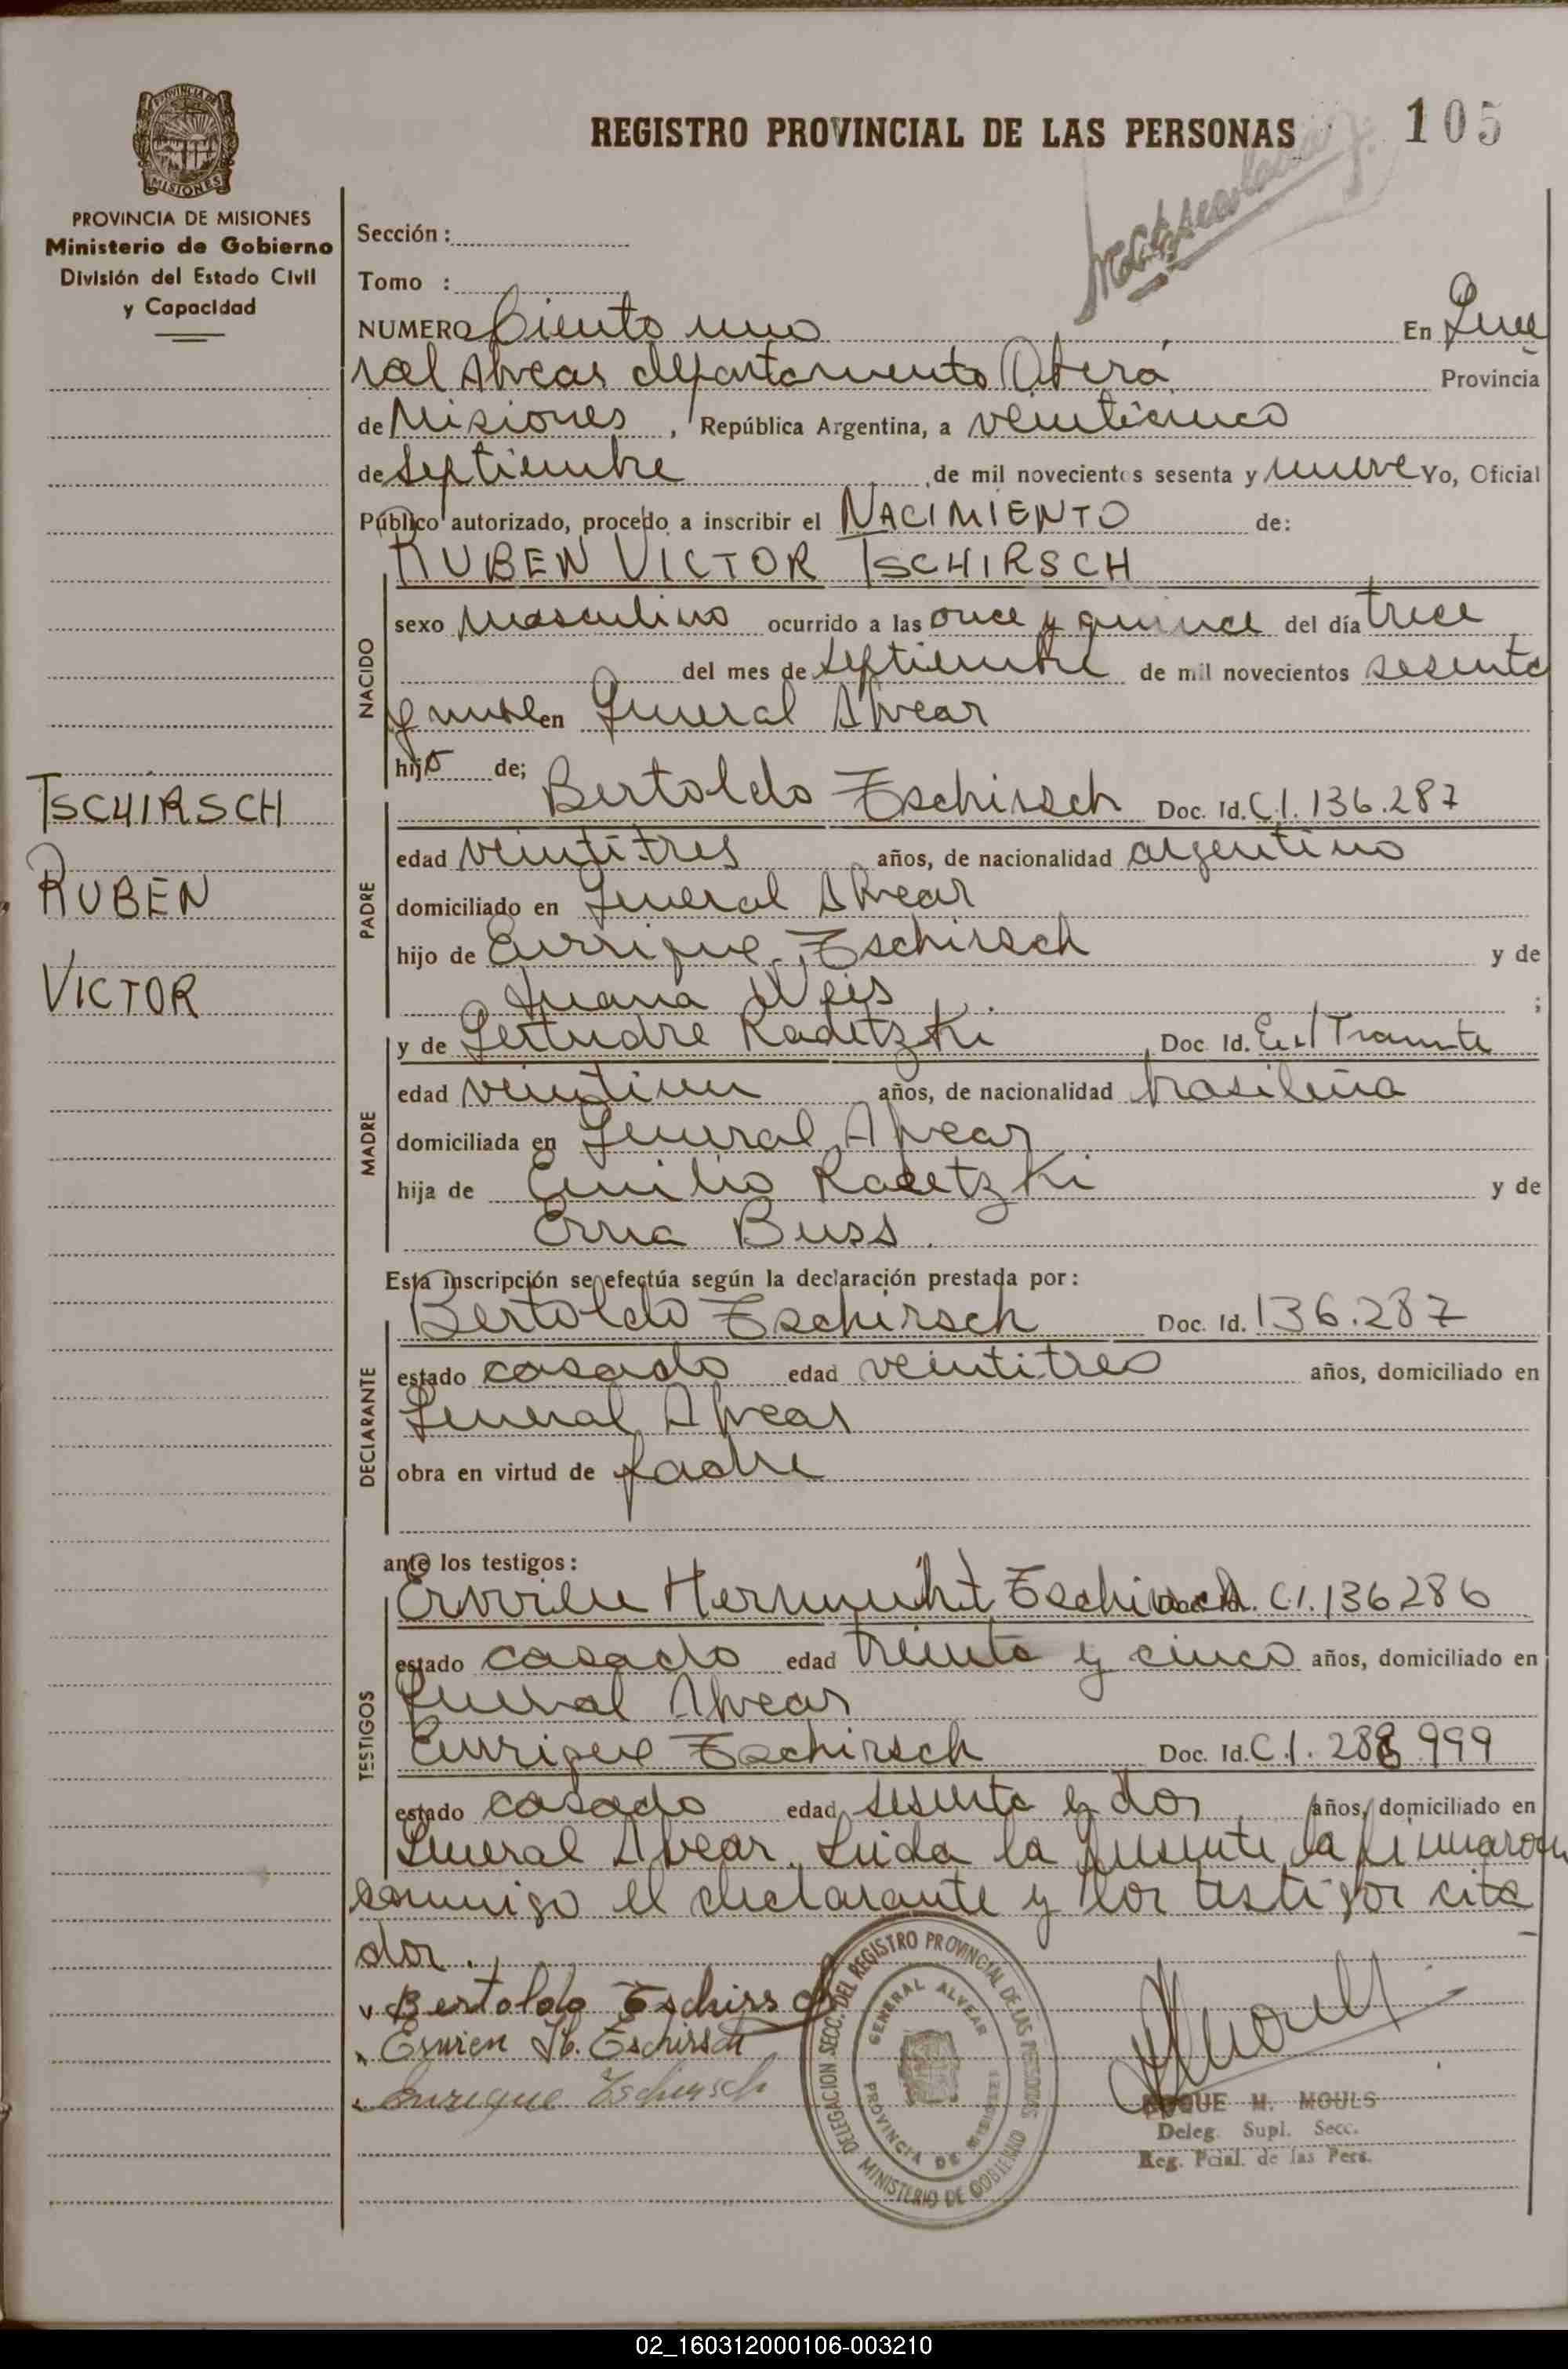 REGISTRO PROVINCIAL DE LAS PERSONAS
105
PROVINCIA DE MISIONES
PROVINCIA DE MISIONES
Ministerio de Gobierno
División del Estado Civil
y Capacidad
Sección:
Tomo :
NUMERO Ciento uno En Gene
ral Alvear departamento Oberá Provincia
de Misiones, República Argentina, a veinticinco
de Septiembre de mil novecientos sesenta y nueve Yo, Oficial
Público autorizado, procedo a inscribir el NACIMIENTO de:
RUBEN VICTOR TSCHIRSCH
NACIDO
sexo Masculino ocurrido a las once y quince del día trece
del mes de Septiembre de mil novecientos sesenta
y nueve en General Alvear
hijo de;
TSCHIRSCH
RUBEN
VICTOR
PADRE
Bertoldo Tschirsch Doc. Id. C.I. 136.287
edad veintitres años, de nacionalidad argentino
domiciliado en General Alvear
hijo de Enrrique Tschirsch y de
Juana Weis ;
MADRE
y de Gertudre Radetzki Doc. Id. En Tramite
edad veintiun años, de nacionalidad brasileña
domiciliada en General Alvear
hija de Emilio Radetzki y de
Erna Buss.
Esta inscripción se efectúa según la declaración prestada por:
DECLARANTE
Bertoldo Tschirsch Doc. Id. 136.287
estado casado edad veintitres años, domiciliado en
General Alvear
obra en virtud de padre
ante los testigos:
TESTIGOS
Tschirsch Doc. Id. C.I. 136286
estado casado edad treinta y cinco años, domiciliado en
General Alvear
Enrrique Tschirsch Doc. Id. C.I. 288.999
estado casado edad sesenta y dos años, domiciliado en
General Alvear. Leida la presente, la firmaron
conmigo el declarante y los testigos cita
dos.
Bertoldo Tschirsch
Erwien H. Tschirsch
Enrique Tschirsch
DELEGACION SECC. DEL REGISTRO PROVINCIAL DE LAS PERSONAS
MINISTERIO DE GOBIERNO
GENERAL ALVEAR
PROVINCIA DE MISIONES
ROQUE H. MOULS
Deleg. Supl. Secc.
Reg. Pcial. de las Pers.
02_160312000106-003210